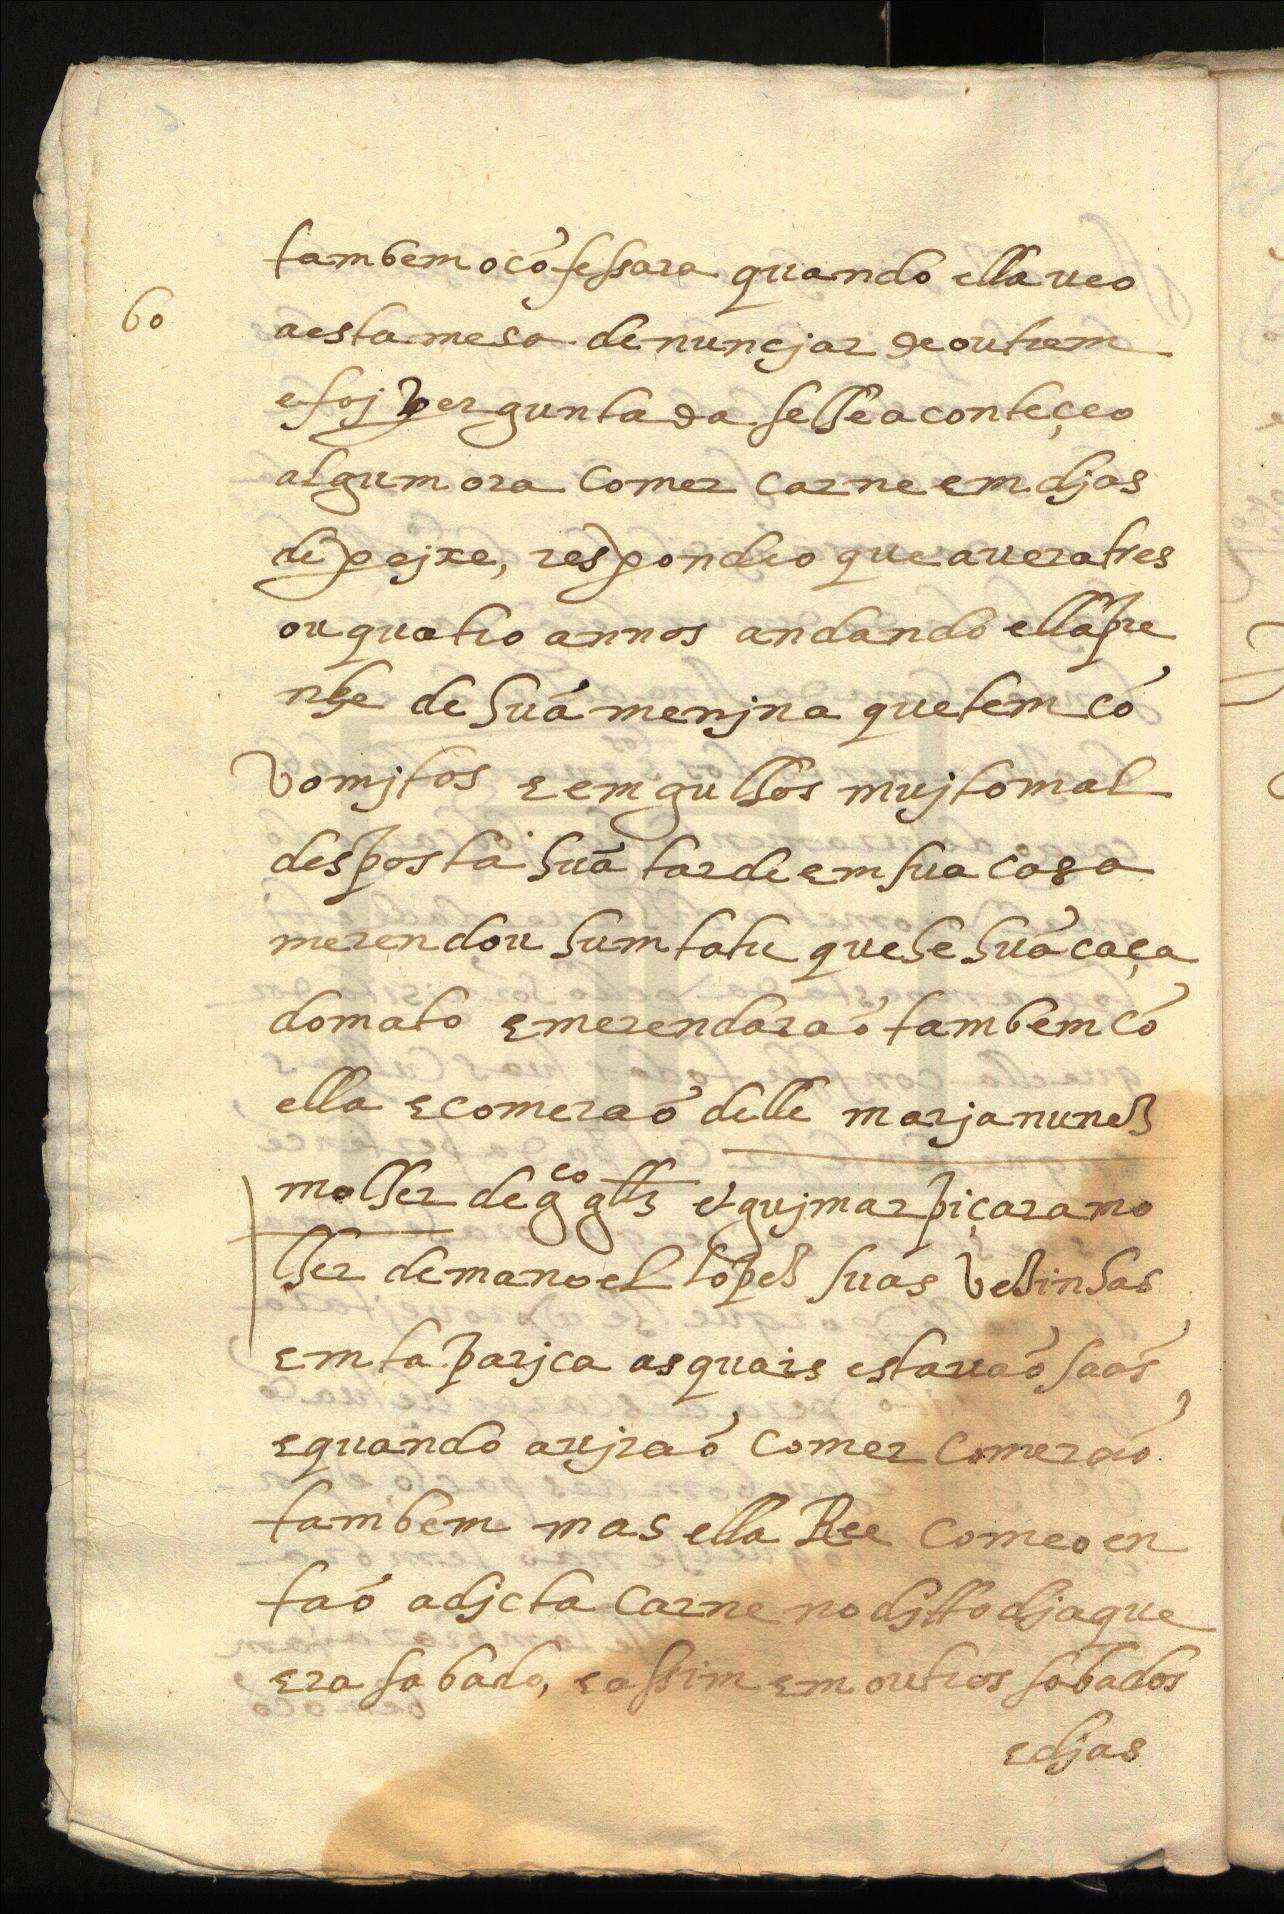 60
tambem o cõfessara quando ella veo
a esta mesa denunçjar de outrem
e foj perguntada se lhe aconteçeo
algum ora comer carne em djas
de pejxe, respondeo que avera tres
ou quatro annos andando ella pre
nhe de huã menjna que tem cõ
vomjtos e emgulhos mujto mal
desposta huã tarde em sua casa
merendou hum tatu que he huã caça
do mato e merendaraõ tambem cõ
ella e comeraõ delle marja nunez
molher de gco glz et gujmar piçara mo
lher de manoel lopez suas vezinhas
em taparjca as quais estavaõ saãs
e quando a vjraõ comer comeraõ
tambem mas ella Ree comeo en
taõ a djcta carne no djtto dja que
era sabado, e assim em outros sabados
e djas